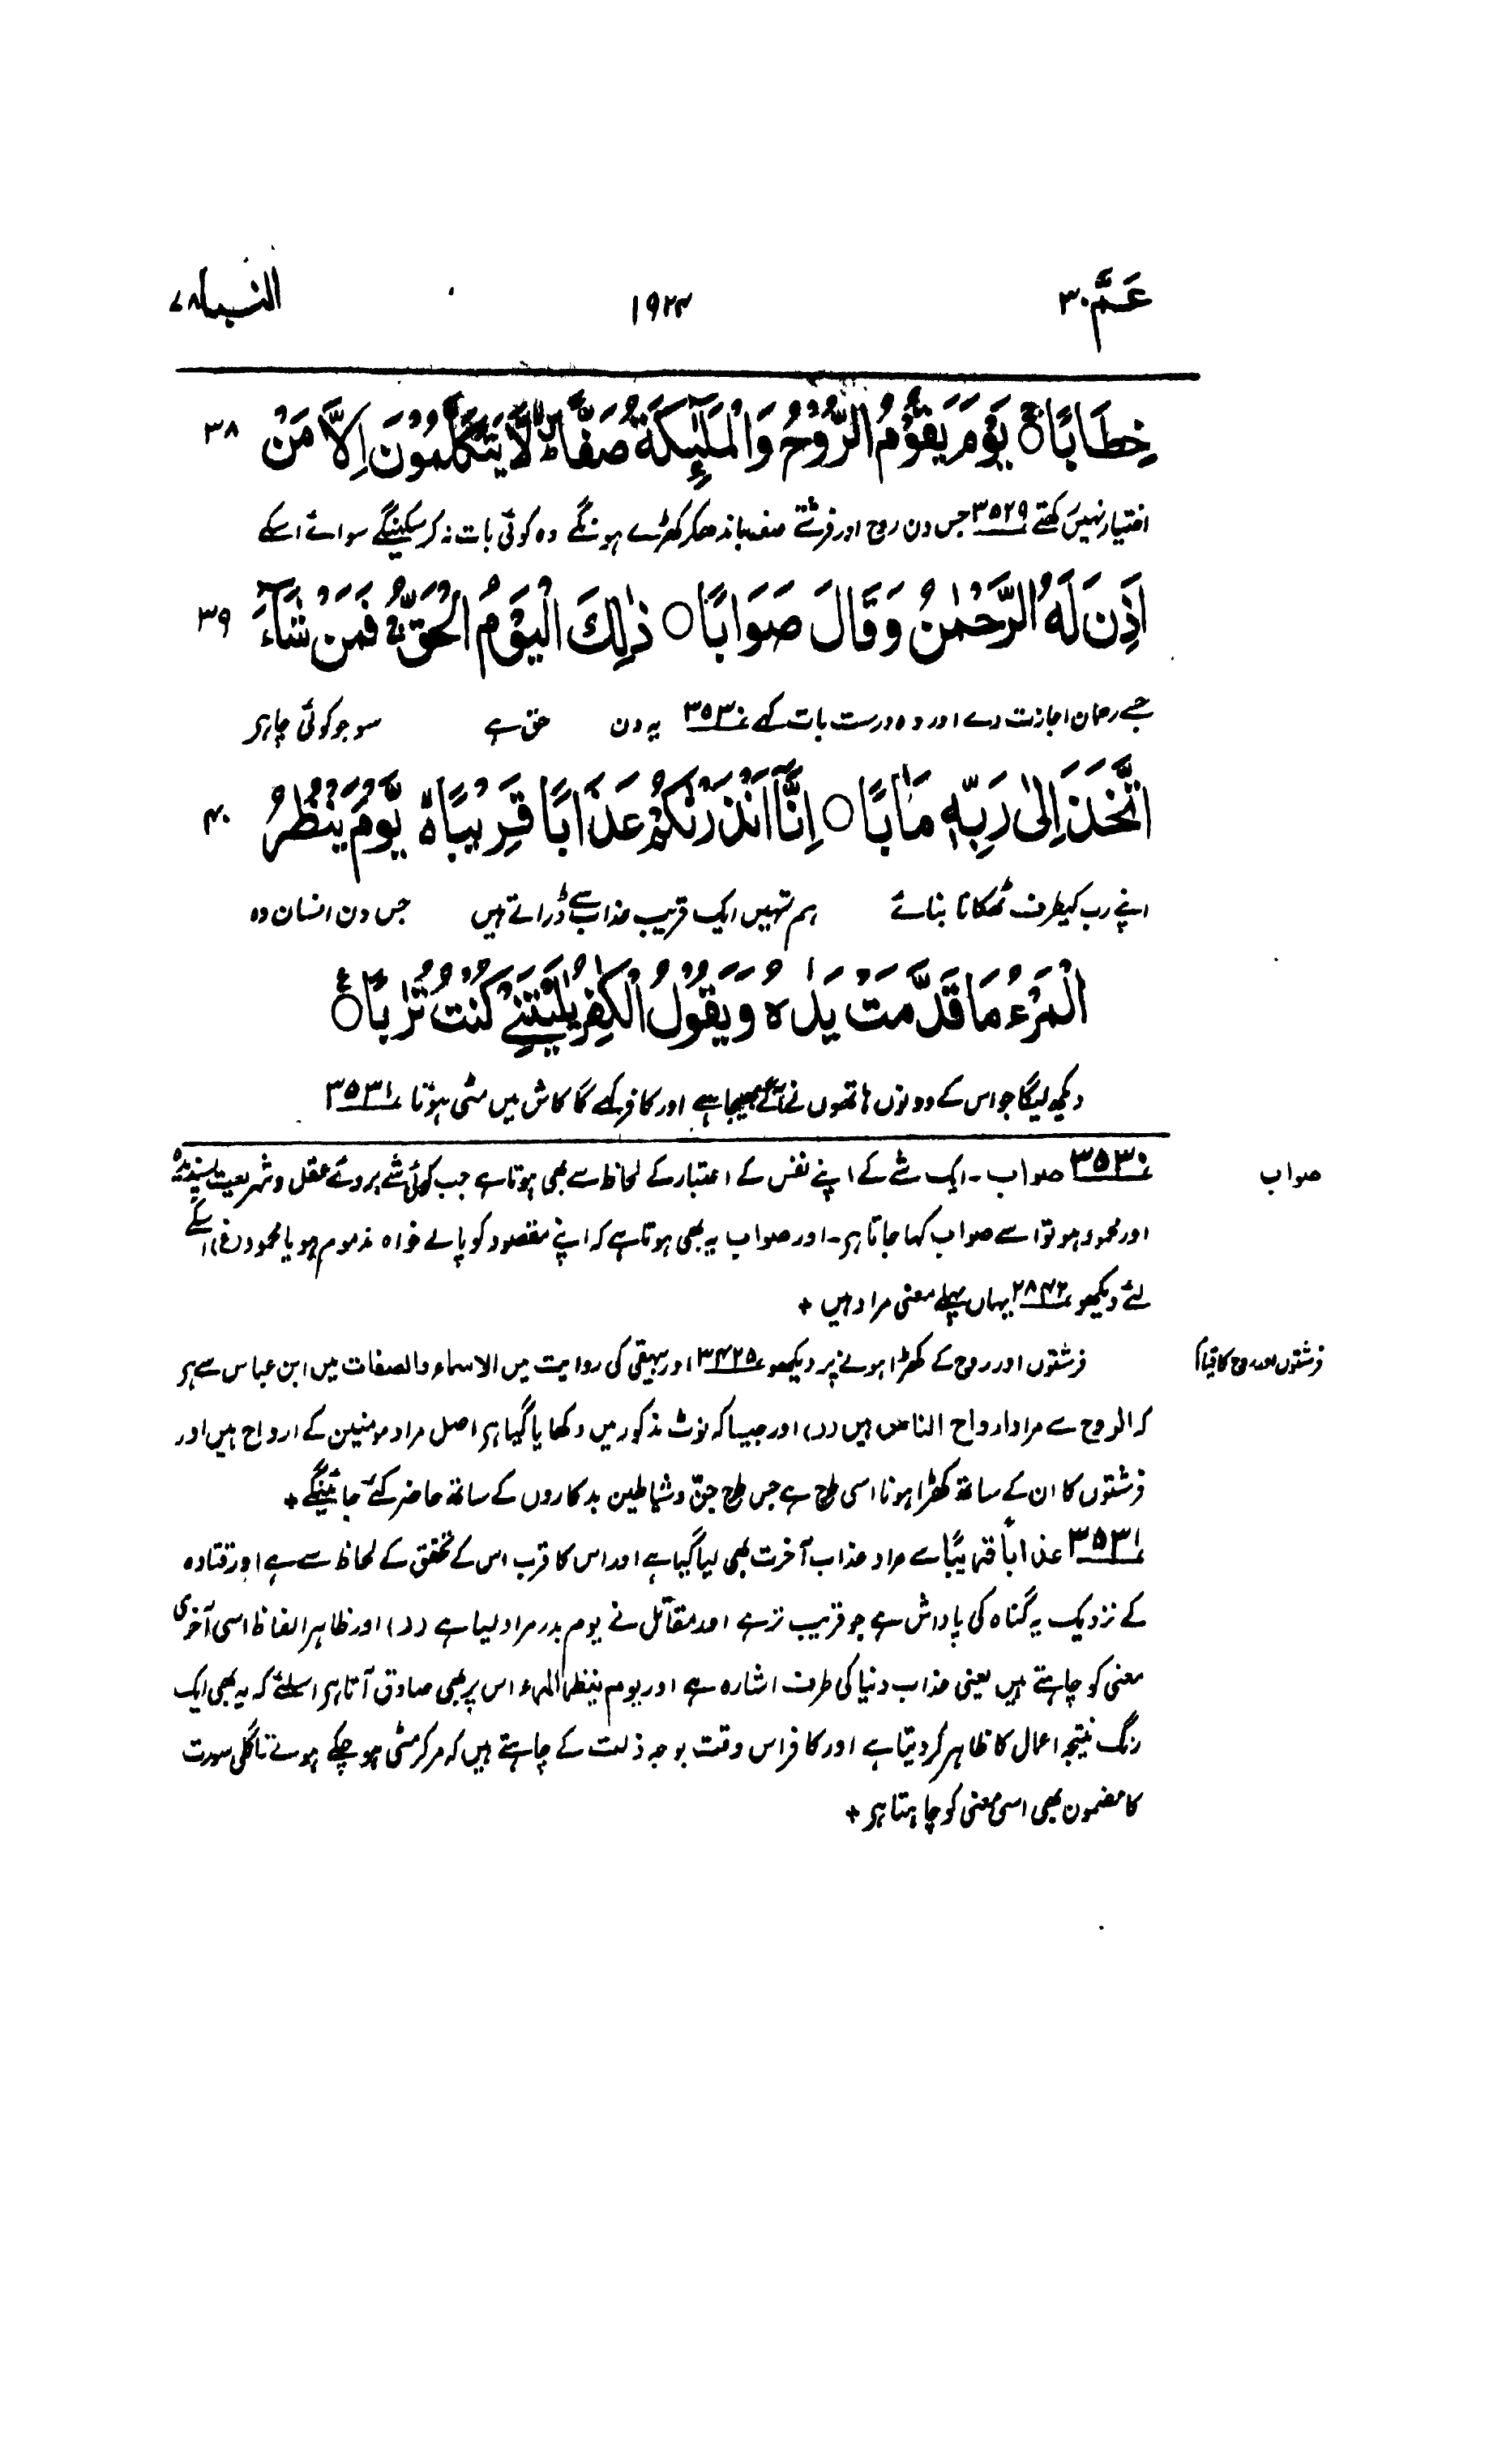 عَمَّ ۳۰
۱۹۲۴
النبا ۷۸
خِطَابًا ۚ يَوْمَ يَقُوْمُ الرُّوْحُ وَالْمَلٰٓئِكَةُ صَفًّا ؕ لَّا يَتَكَلَّمُوْنَ اِلَّا مَنْ ۳۸
اختیار نہیں رکھتے ۳۵۲۹ جس دن روح اور فرشتے صف باندھکر کھڑے ہونگے وہ کوئی بات نہ کرسکینگے سوائے اسکے
اَذِنَ لَهُ الرَّحْمٰنُ وَقَالَ صَوَابًا ○ ذٰلِكَ الْيَوْمُ الْحَقُّ ۚ فَمَنْ شَآءَ ۳۹
جسے رحمان اجازت دے اور وہ درست بات کہے ۳۵۳۰ یہ دن حق ہے سو جو کوئی چاہے
اتَّخَذَ اِلٰى رَبِّهٖ مَاٰبًا ○ اِنَّاۤ اَنْذَرْنٰكُمْ عَذَابًا قَرِيْبًا ۚۖ يَّوْمَ يَنْظُرُ ۴۰
اپنے رب کیطرف ٹھکانا بنائے ہم تمہیں ایک قریب عذاب سے ڈراتے ہیں جس دن انسان وہ
الْمَرْءُ مَا قَدَّمَتْ يَدٰهُ وَيَقُوْلُ الْكٰفِرُ يٰلَيْتَنِيْ كُنْتُ تُرٰبًا ۠
دیکھ لیگا جو اس کے دونوں ہاتھوں نے آگے بھیجا ہے اور کافر کہے گا کاش میں مٹی ہوتا ۳۵۳۱
صواب
۳۵۳۰ صواب۔ ایک شے کے اپنے نفس کے اعتبار کے لحاظ سے بھی ہوتا ہے جب کوئی شے بروئے عقل و شریعت پسندیدہ
اور محمود ہو تو اسے صواب کہا جاتا ہے۔ اور صواب یہ بھی ہوتا ہے کہ اپنے مقصود کو پالے خواہ مذموم ہو یا محمود (غ) اسکے
لئے دیکھو ۲۸۴۲ یہاں پہلے معنی مراد ہیں +
فرشتوں اور روح کا قیام
فرشتوں اور روح کے کھڑا ہونے پر دیکھو ۳۴۲۵ اور بیہقی کی روایت میں الاسماء والصفات میں ابن عباس سے ہے
کہ الروح سے مراد ارواح الناس ہیں (ر) اور جیسا کہ نوٹ مذکور میں دکھایا گیا ہے اصل مراد مومنین کے ارواح ہیں اور
فرشتوں کا ان کے ساتھ کھڑا ہونا اسی طرح ہے جس طرح جنّ و شیاطین بدکاروں کے ساتھ حاضر کئے جائینگے +
۳۵۳۱ عذاباً قریبًا سے مراد عذاب آخرت بھی لیا گیا ہے اور اس کا قرب اس کے تحقق کے لحاظ سے ہے اور قتادہ
کے نزدیک یہ گناہ کی پاداش ہے جو قریب تر ہے اور مقاتل نے یوم بدر مراد لیا ہے (ر) اور ظاہر الفاظ اسی آخری
معنی کو چاہتے ہیں یعنی عذاب دنیا کی طرف اشارہ ہے اور یوم ینظر المرء اس پر بھی صادق آتا ہے اسلئے کہ یہ بھی ایک
رنگ نتیجہ اعمال کا ظاہر کر دیتا ہے اور کافر اس وقت بوجہ ذلت کے چاہتے ہیں کہ مرکر مٹی ہو چکے ہوتے تا اگلی سورت
کا مضمون بھی اسی معنی کو چاہتا ہے +